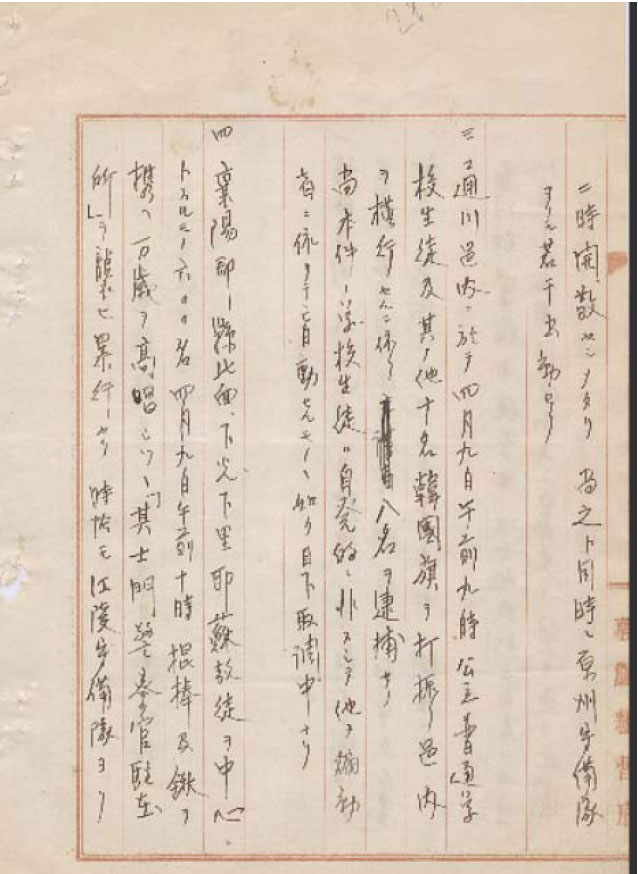 ニ時間数センメタリ 尚之ト同時ニ原州守備隊
ヨリモ若干出動セリ
三 通川邑内ニ於テ四月九日午前九時公立普通学
校生徒及其ノ他十名韓国旗ヲ打振リ邑内
ヲ横行セルニ依リ 八名ヲ逮捕セリ
尚本件ノ学校生徒ハ自発的ニ非スシテ他ノ煽動
者ニ依リテ自動セルモノト知リ目下取調中ナリ
四 襄陽郡 県北面下光丁里耶蘇教徒ヲ中心
トスルモノ六〇〇名四月九日午前十時棍棒及鍬ヲ
携ヘ万歳ヲ高唱シツヽ其士門警察官駐在
所ヲ襲ヒ暴行セリ 時恰モ江陵守備隊ヨリ